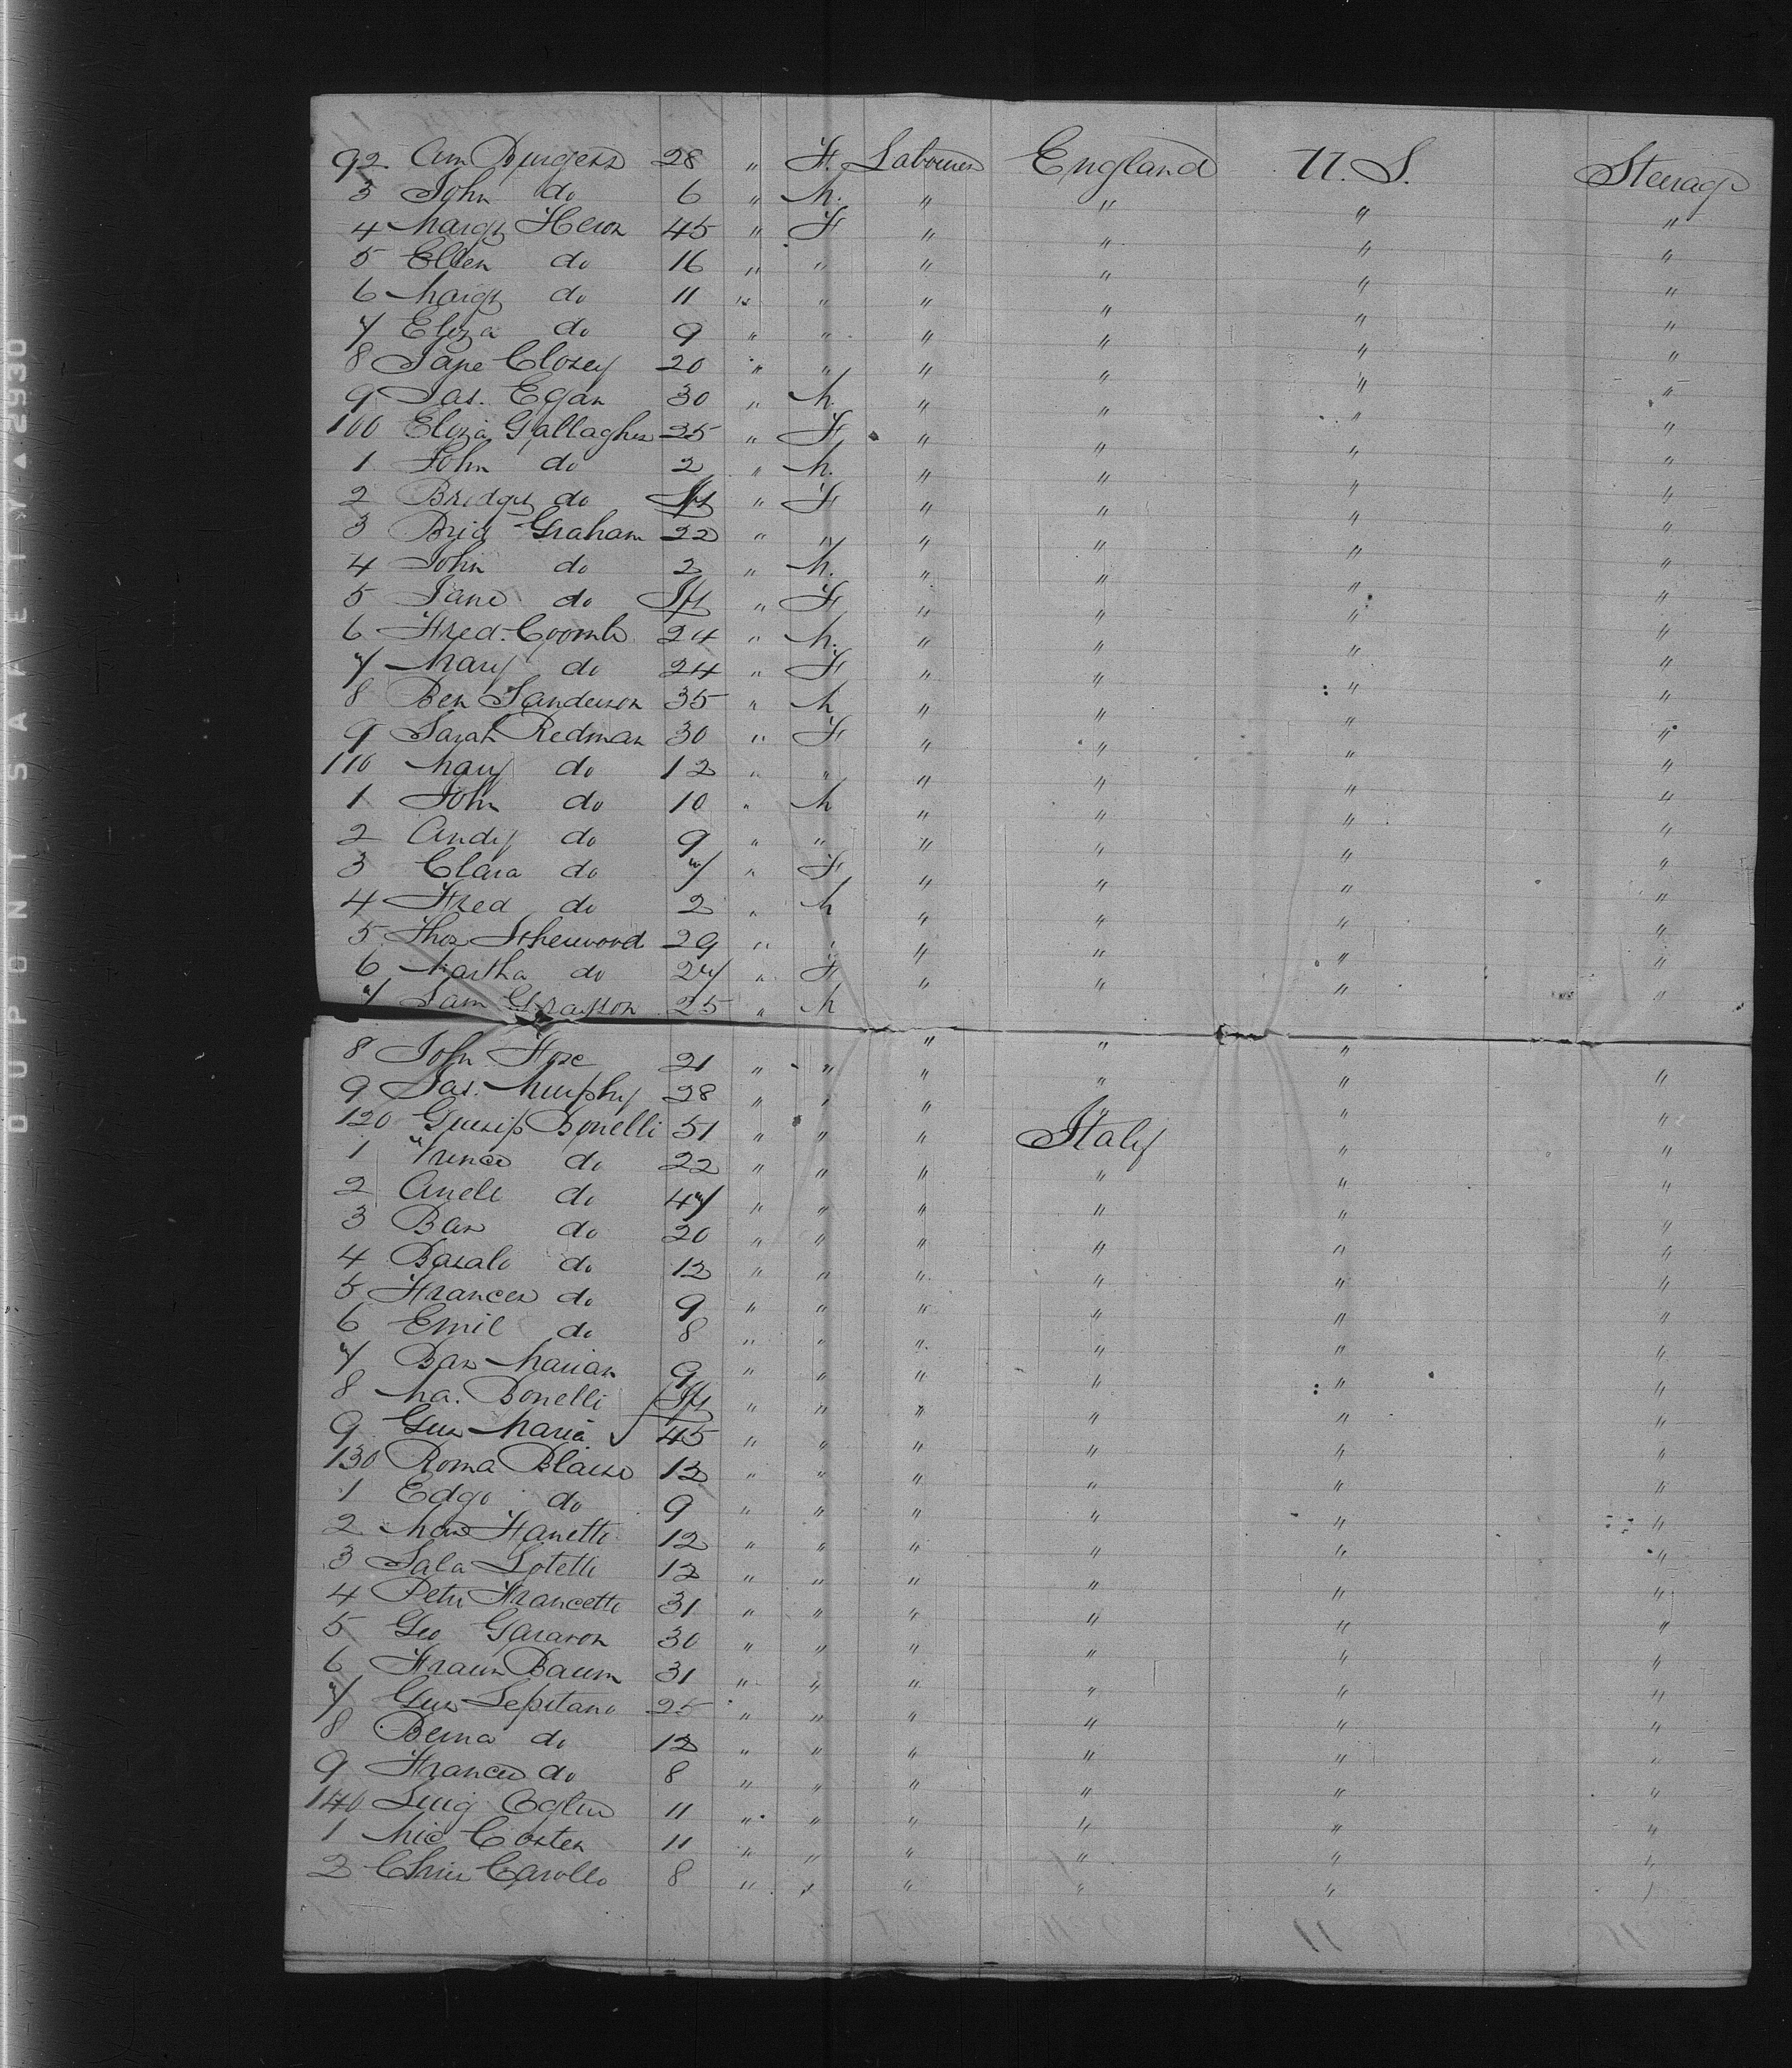 92. Ann Burgess 28 " F. Labourer England U. S. Steerage
3 John do 6 " M. " " " "
4 Margt Heron 45 " F " " " "
5 Ellen do 16 " " " " " "
6 Margt do 11 " " " " " "
7 Eliza do 9 " " " " " "
8 Jane Closey 20 " " " " " "
9 Jas. Egan 30 " M. " " " "
100 Eliza Gallagher 25 " F " " " "
1 John do 2 " M. " " " "
2 Bridget do Inft " F " " " "
3 Brid Graham 22 " " " " " "
4 John do 2 " M. " " " "
5 Jane do Inft " F " " " "
6 Fred. Coombs 24 " M. " " " "
7 Mary do 24 " F " " " "
8 Ben Sanderson 35 " M " " " "
9 Sarah Redman 30 " F " " " "
110 Mary do 12 " " " " " "
1 John do 10 " M " " " "
2 Andy do 9 " " " " " "
3 Clara do 7 " F " " " "
4 Fred do 2 " M " " " "
5 Thos Sherwood 29 " " " " " "
6 Martha do 27 " F " " " "
7 Sam Grasson 25 " M " " "
8 John Hose 21 " " " " "
9 Jas. Murphy 28 " " " " " "
120 Guisip Bonelli 51 " " " Italy " "
1 do 22 " " " " " "
2 do 47 " " " " " "
3 Bar do 20 " " " " " "
4 do 12 " " " " " "
5 Frances do 9 " " " " " "
6 Emil do 8 " " " " " "
7 Bar Marian 9 " " " " " "
8 Ma. Bonelli Inft " " " " " "
9 Gus Maria 45 " " " " " "
130 Roma Blaise 12 " " " " " "
1 Edgo do 9 " " " " " "
2 Fanetti 12 " " " " " "
3 Sala Lotetti 12 " " " " " "
4 Petr Francetti 31 " " " " " "
5 Geo 30 " " " " " "
6 Baum 31 " " " " " "
7 Gus Lepitano 25 " " " " " "
8 Berna do 12 " " " " " "
9 Frances do 8 " " " " " "
140 Luig 11 " " " " " "
1 Nic Costen 11 " " " " " "
2 Chris Carollo 8 " " " " "
DUPONT SAFETY ▲ 2930